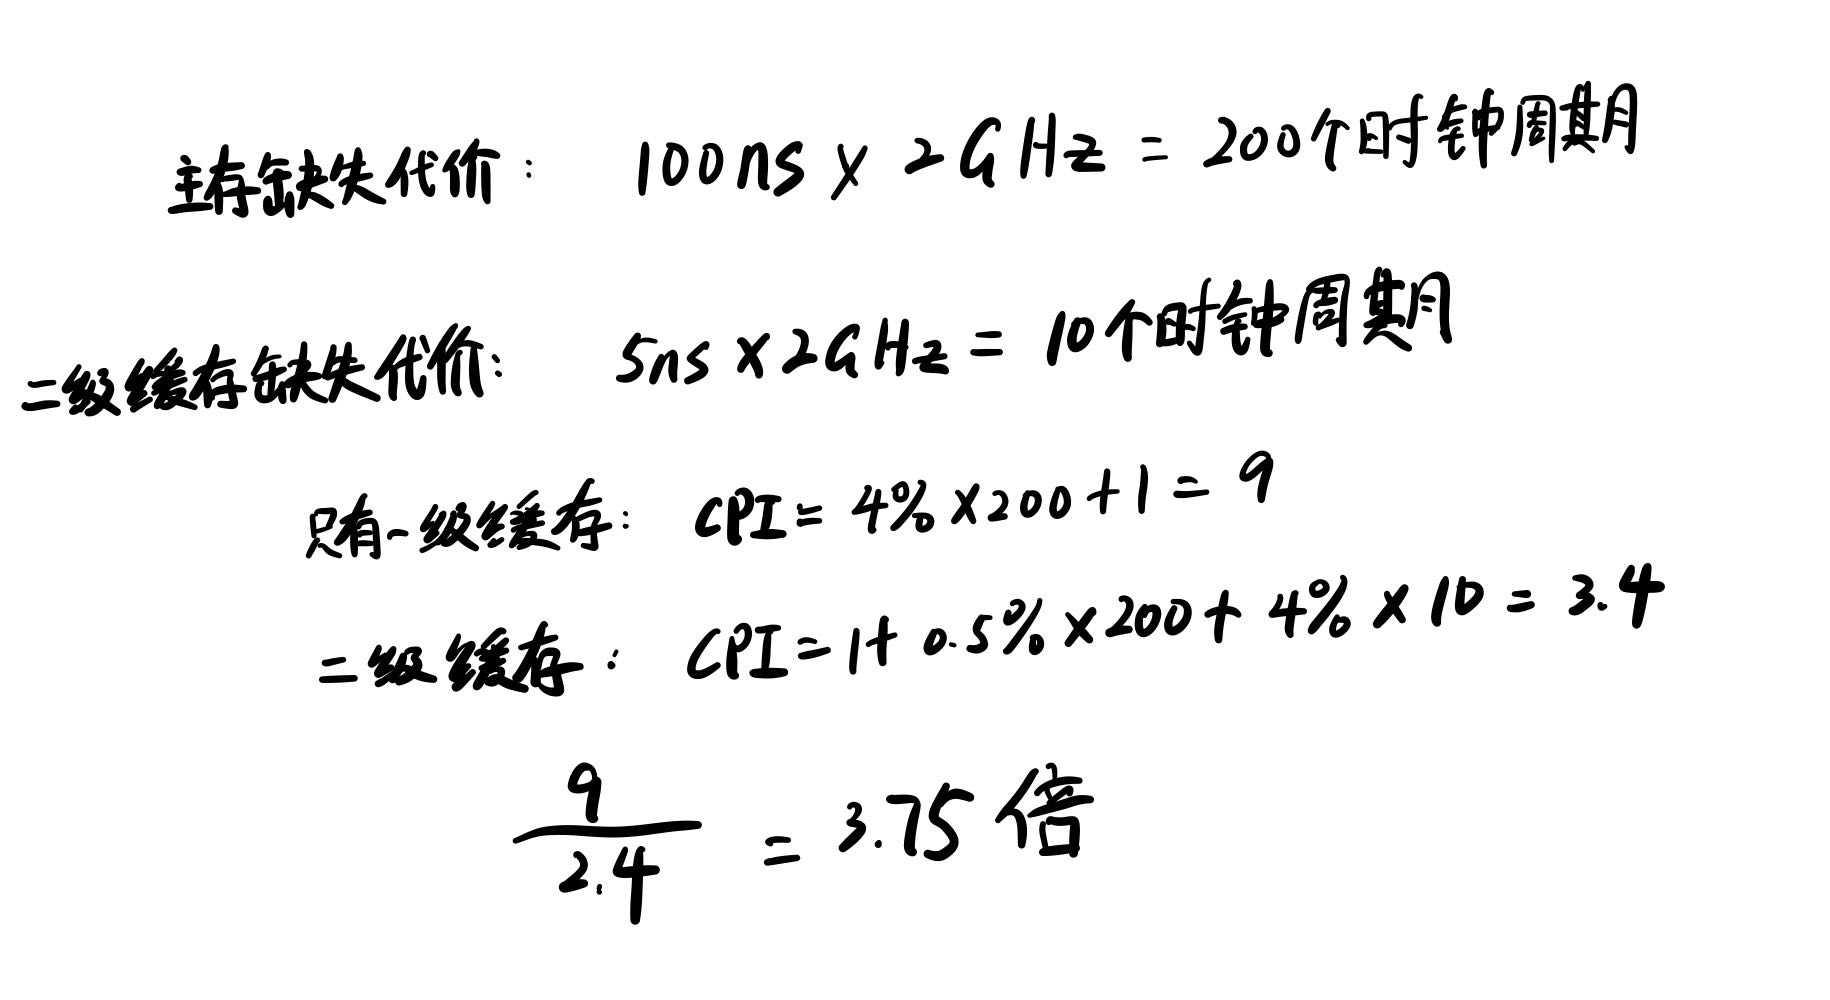 主存缺失代价： 100ns × 2GHz = 200个时钟周期
二级缓存缺失代价： 5ns × 2GHz = 10个时钟周期
只有一级缓存： CPI = 4% × 200 + 1 = 9
二级缓存： CPI = 1 + 0.5% × 200 + 4% × 10 = 3.4
9
2.4
= 3.75 倍